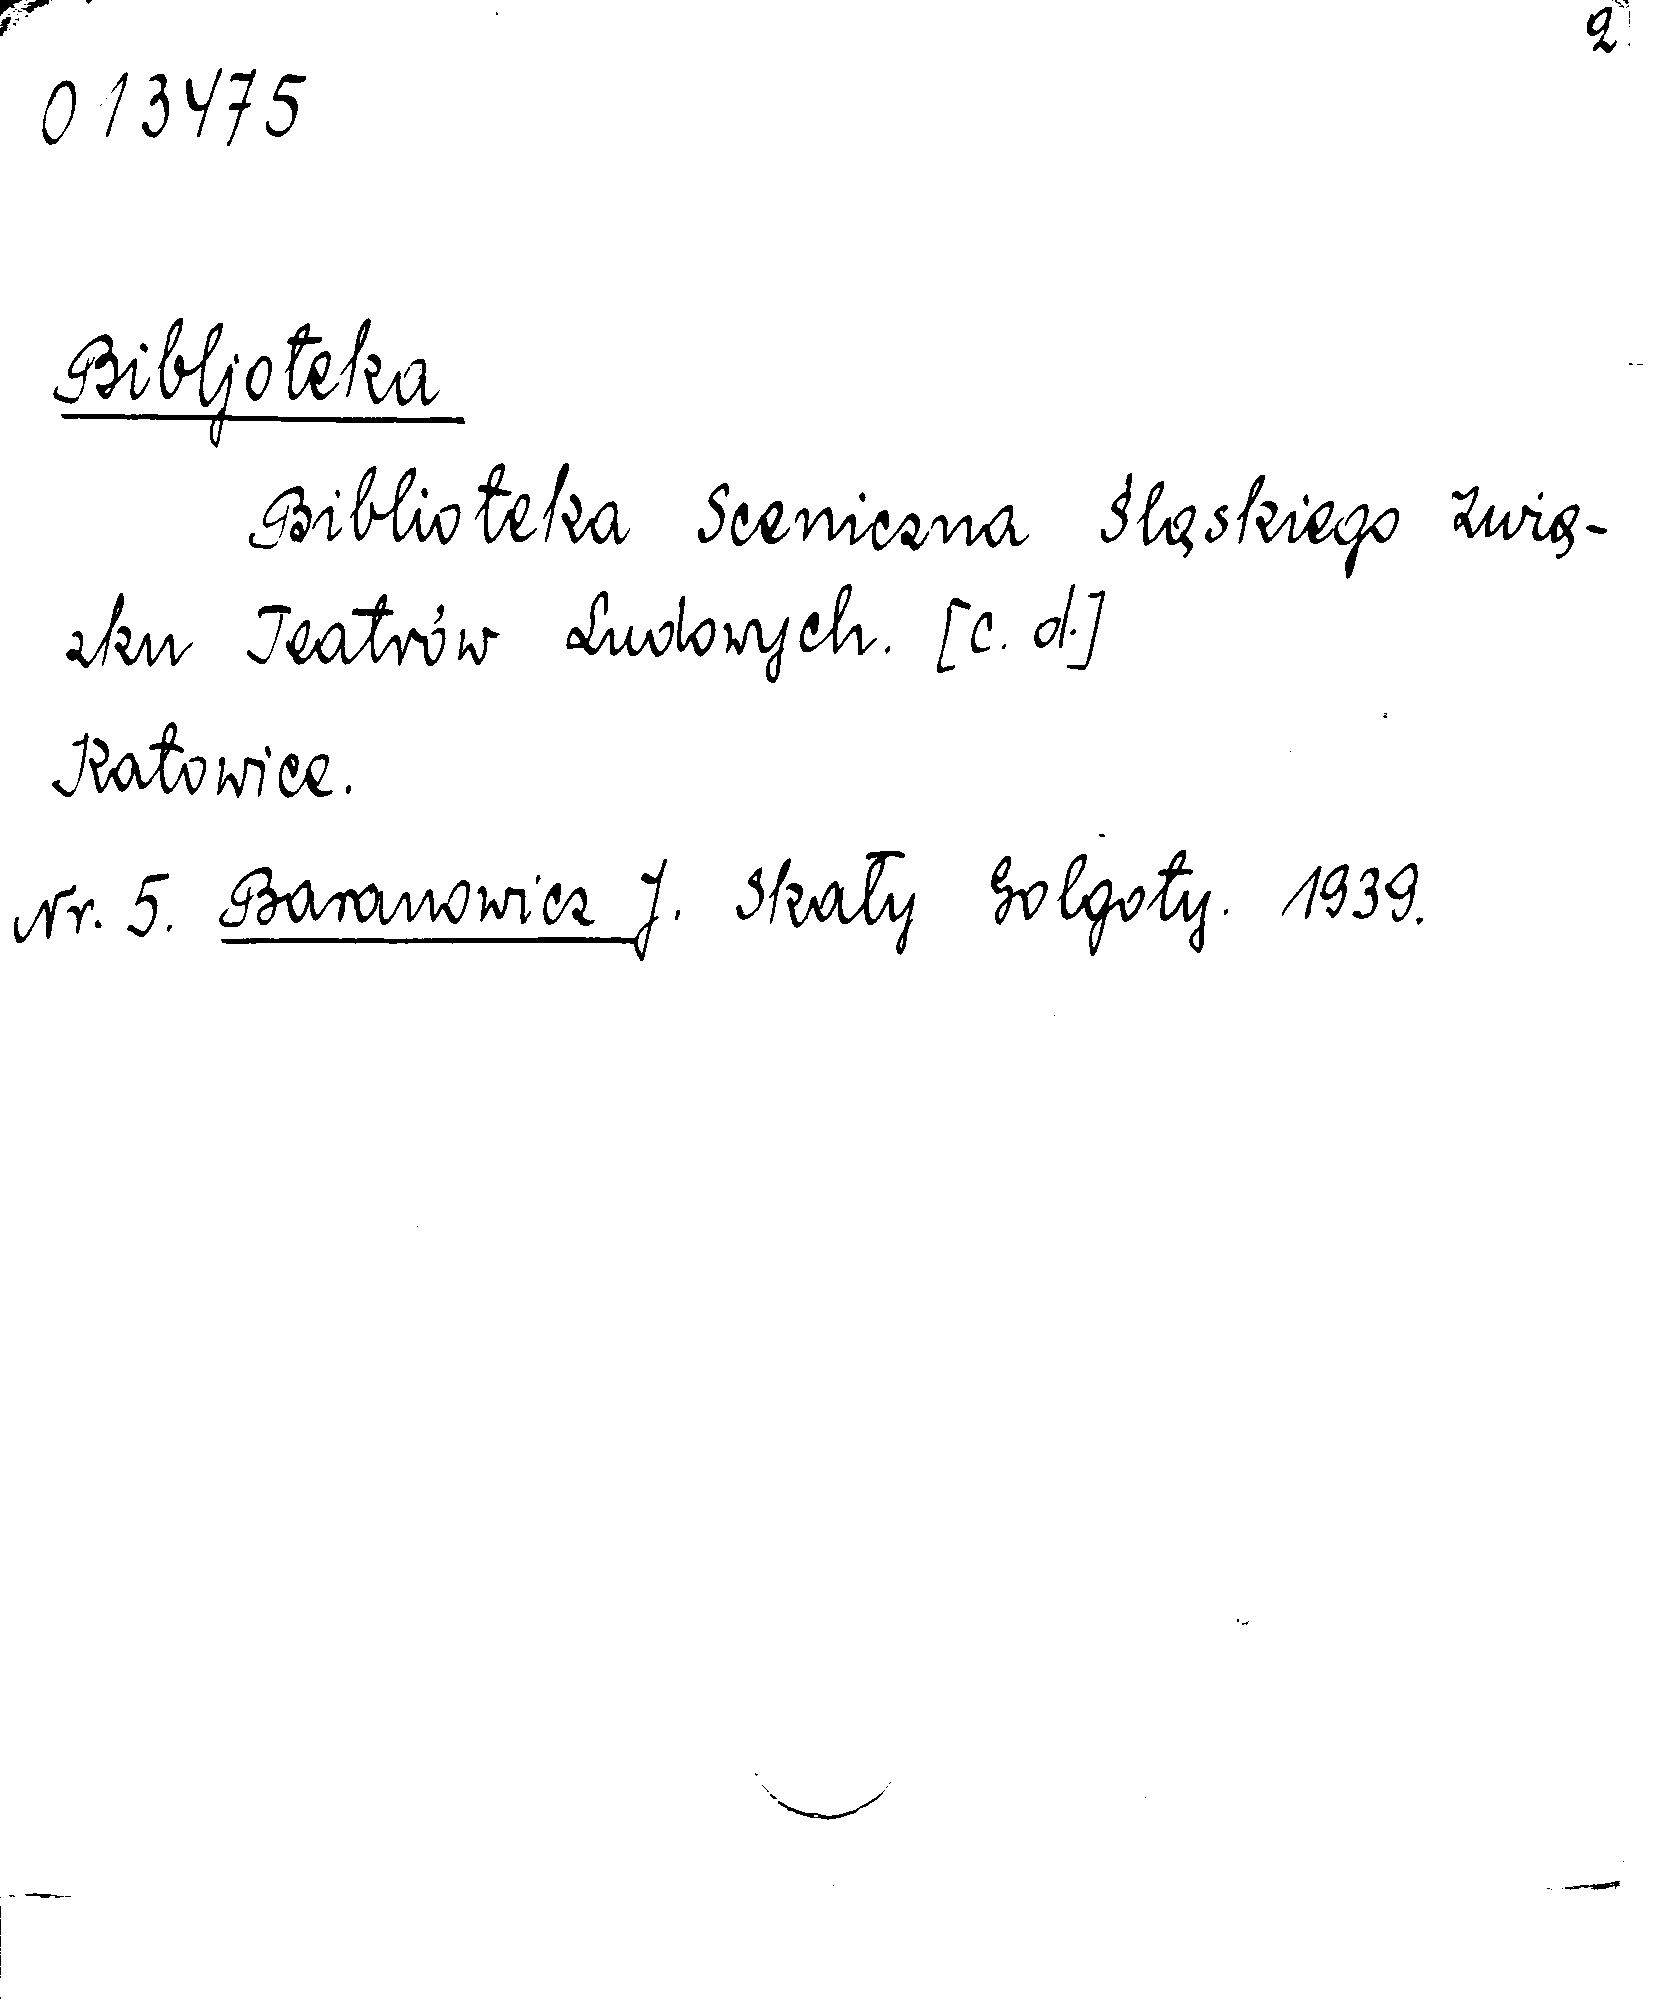 2
013475
Bibljoteka
Biblioteka Sceniczna Śląskiego Zwią-
zku Teatrów Ludowych. [c. d.]
Katowice.
Nr. 5. Baranowicz J. Skały Golgoty. 1939.